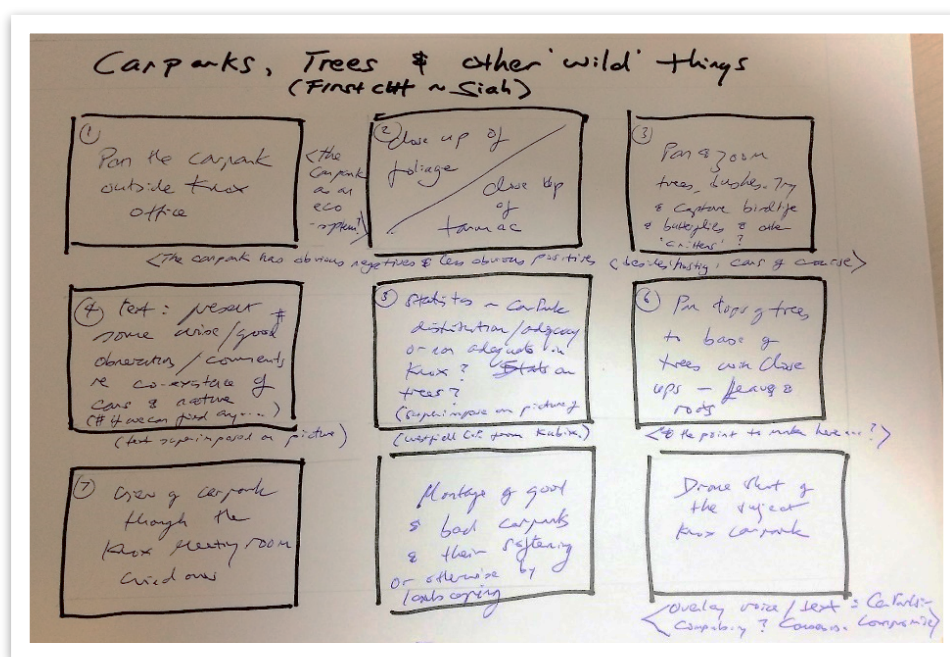 Carparks, Trees & other 'wild' things
(First cut ~ Siah)
①
Pan the carpark
outside Knox
office
<the
carpark
as an
eco
-system?>
②
Close up of
foliage
close up
of
tarmac
③
Pan & zoom
trees, bushes. Try
& capture birdlife
& butterflies & other
'critters'?
<The carpark has obvious negatives & less obvious positives (besides cars of course>
④ text: present #
some wise/good
observation/comments
re co-existence of
cars & nature
(# if we can find any....)
(text superimposed on picture)
⑤ Statistics ~ carpark
distribution/adequacy
or non adequate in
Knox? Stats on
trees?
(superimpose on picture of
from
⑥ Pan tops of trees
to base of
trees with close
ups - leaves &
roots
<& the point to make here is...?>
⑦ View of carpark
through the
Knox Meeting room
windows
Montage of good
& bad carparks
& their softening
or otherwise by
landscaping
Drone shot of
the subject
Knox carpark
<Overlay voice/text:
Compromise>